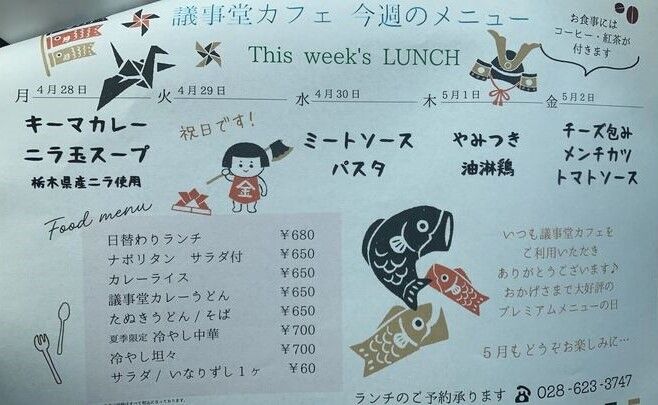 議事堂カフェ 今週のメニュー
This week's LUNCH
お食事には
コーヒー・紅茶が
付きます
月 4月28日
火 4月29日
水 4月30日
木 5月1日
金 5月2日
キーマカレー
ニラ玉スープ
栃木県産ニラ使用
祝日です!
金
ミートソース
パスタ
やみつき
油淋鶏
チーズ包み
メンチカツ
トマトソース
Food menu
日替わりランチ ￥680
ナポリタン サラダ付 ￥650
カレーライス ￥650
議事堂カレーうどん ￥650
たぬきうどん/そば ￥650
夏季限定 冷やし中華 ￥700
冷やし坦々 ￥700
サラダ/いなりずし1ヶ ￥60
いつも議事堂カフェを
ご利用いただき
ありがとうございます♪
おかげさまで大好評の
プレミアムメニューの日
5月もどうぞお楽しみに…
ランチのご予約承ります ☎ 028-623-3747